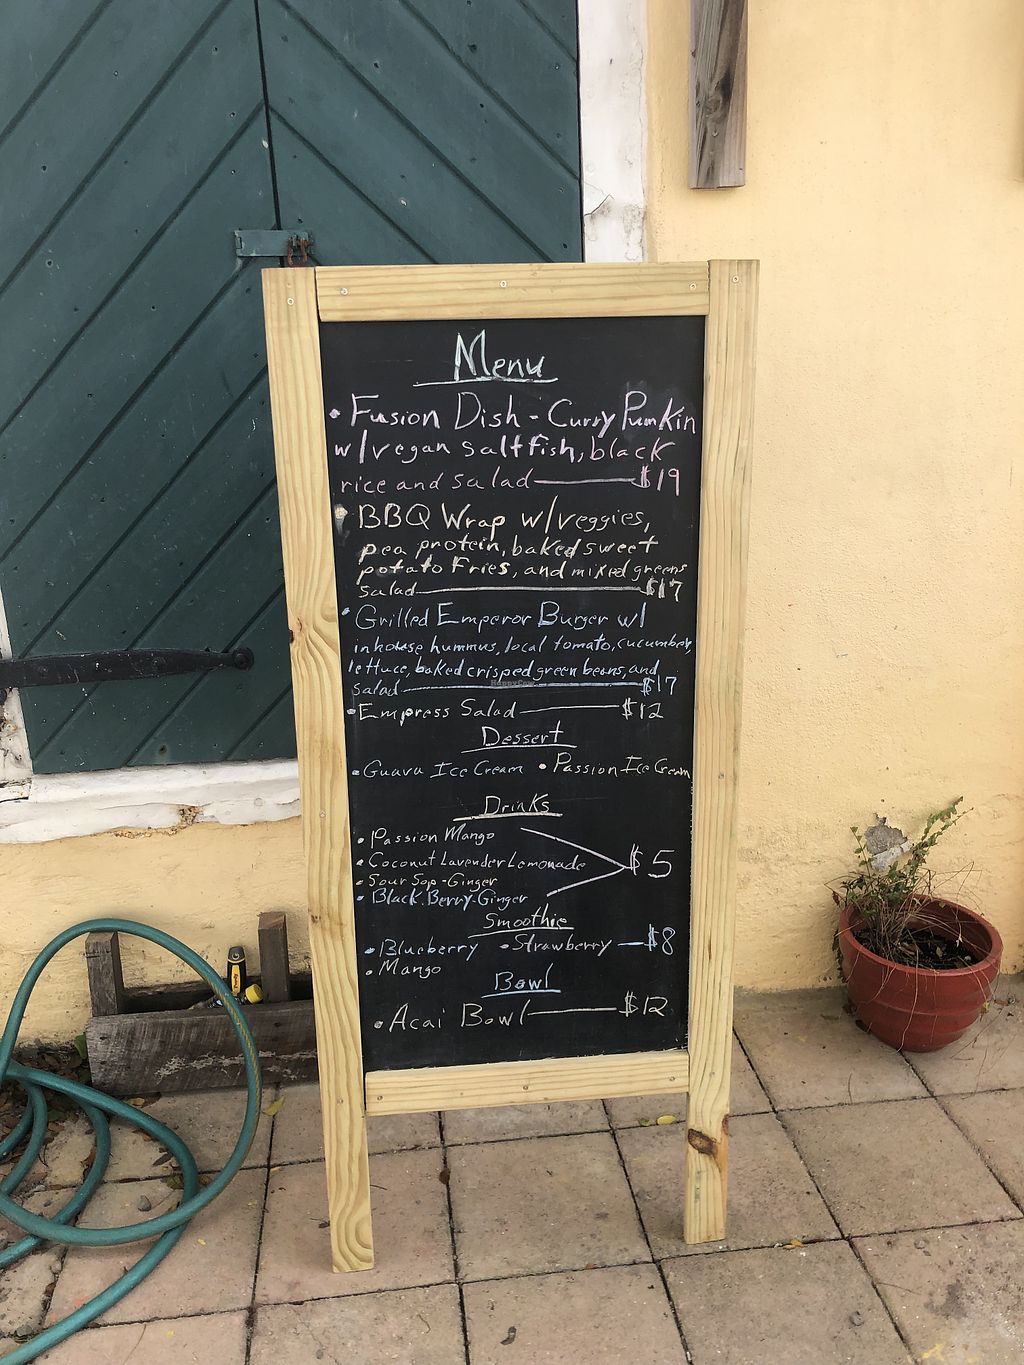 Menu
• Fusion Dish - Curry Pumkin
w/vegan saltfish, black
rice and salad $19
• BBQ Wrap w/veggies,
pea protein, baked sweet
potato Fries, and mixed greens
salad $17
• Grilled Emperor Burger w/
inhouse hummus, local tomato, cucumber,
lettuce, baked crisped green beans, and
salad $17
• Empress Salad $12
Dessert
• Guava Ice Cream • Passion Ice Cream
Drinks
• Passion Mango
• Coconut Lavender Lemonade $5
• Sour Sop-Ginger
• Black.Berry-Ginger
Smoothie
• Blueberry • Strawberry $8
• Mango
Bowl
• Acai Bowl $12
HappyCow